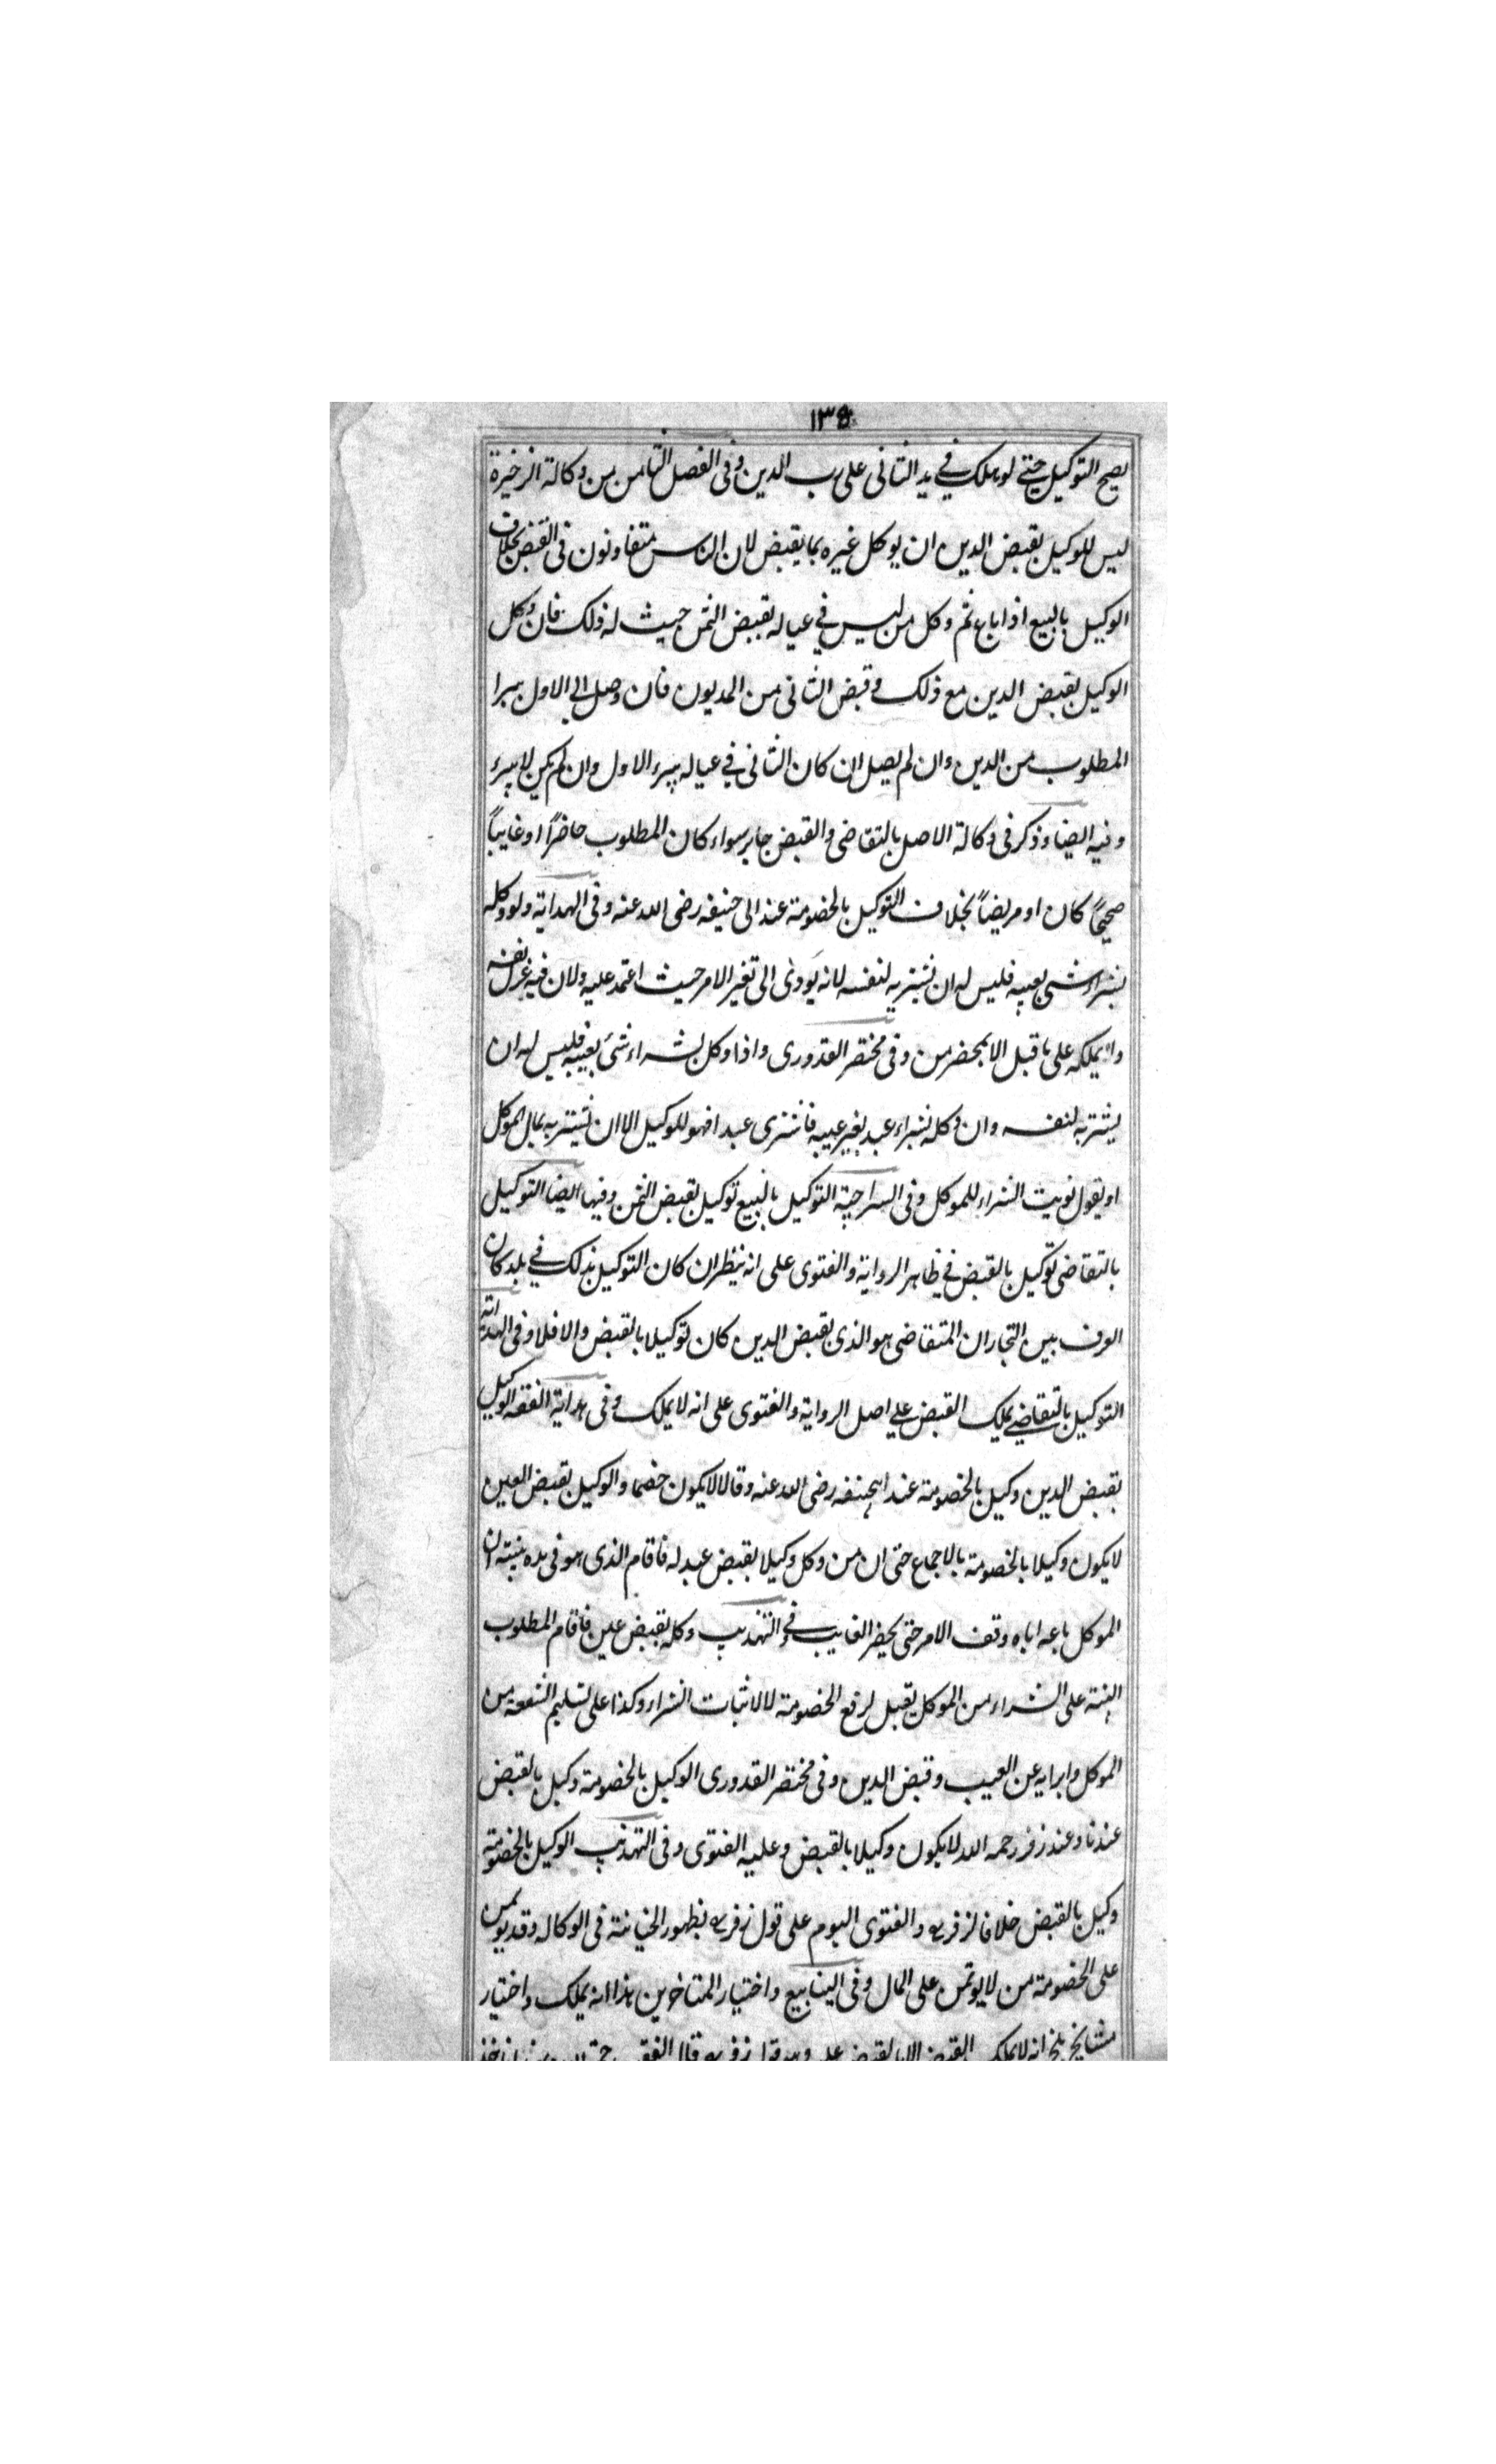 ١٣٥
يصح التوكيل حتى لو هلك في يد الثاني على رب الدين وفي الفصل الثامن من وكالة الذخيرة
ليس للوكيل بقبض الدين ان يوكل غيره بما يقبض لان الناس متفاوتون في القبض بخلاف
الوكيل بالبيع اذا باع ثم وكل من ليس في عياله بقبض الثمن حيث له ذلك فان وكل
الوكيل بقبض الدين مع ذلك وقبض الثاني من المديون فان وصل الى الاول يبرا
المطلوب من الدين وان لم يصل ان كان الثاني في عياله يبرء الاول وان لم يكن لا يبرء
وفيه ايضا وذكر في وكالة الاصل بالتقاضي والقبض جايز سواء كان المطلوب حاضرًا او غايبًا
صحيحًا كان او مريضًا بخلاف التوكيل بالخصومة عند ابي حنيفه رضي الله عنه وفي الهداية ولو وكله
بشراء شي بعينه فليس له ان يشتريه لنفسه لانه يودي الى تغير الامر حيث اعتمد عليه ولان فيه عزل نفسه
ولا يملكه على ما قيل الا بمحضر من وفي مختصر القدوري واذا وكل بشراء شئ بعينه فليس له ان
يشتريه لنفسه وان وكله بشراء عبد بغير عينه فاشترى عبدا فهو للوكيل الا ان يشتريه بمال الموكل
او يقول نويت الشراء للموكل وفي السراجية التوكيل بالبيع توكيل بقبض الثمن وفيها ايضا التوكيل
بالتقاضي توكيل بالقبض في ظاهر الرواية والفتوى على انه ينظر ان كان التوكيل بذلك في بلد كان
العرف بين التجار ان المتقاضي هو الذي بقبض الدين كان توكيلا بالقبض والا فلا وفي الهداية
التوكيل بالتقاضي يملك القبض على اصل الرواية والفتوى على انه لا يملك وفي هداية الفقه الوكيل
بقبض الدين وكيل بالخصومة عند ابيحنيفه رضي الله عنه وقالا لا يكون خصما والوكيل بقبض العين
لا يكون وكيلا بالخصومة بالاجماع حتى ان من وكل وكيلا بقبض عبد له فاقام الذي هو في يده بينته ان
الموكل باعه اياه وقف الامر حتى يحضر الغايب في والتهذيب وكله بقبض عين فاقام المطلوب
البينة على الشراء من الموكل يقبل لرفع الخصومة لا لاثبات الشراء وكذا على تسليم الشفعة من
الموكل وابرايه عن العيب وقبض الدين وفي مختصر القدوري الوكيل بالخصومة وكيل بالقبض
عندنا وعند زفر رحمه الله لا يكون وكيلا بالقبض وعليه الفتوى وفي التهذيب الوكيل بالخصومة
وكيل بالقبض خلافا لزفر ره والفتوى اليوم على قول زفر ره لظهور الخيانة في الوكاله وقد يوتمن
على الخصومة من لا يوتمن على المال وفي الينابيع واختيار المتاخرين هذا انه يملك واختيار
مشايخ بلخ انه لا يملك القبض الا وهو قول زفر ره قال الفقيه